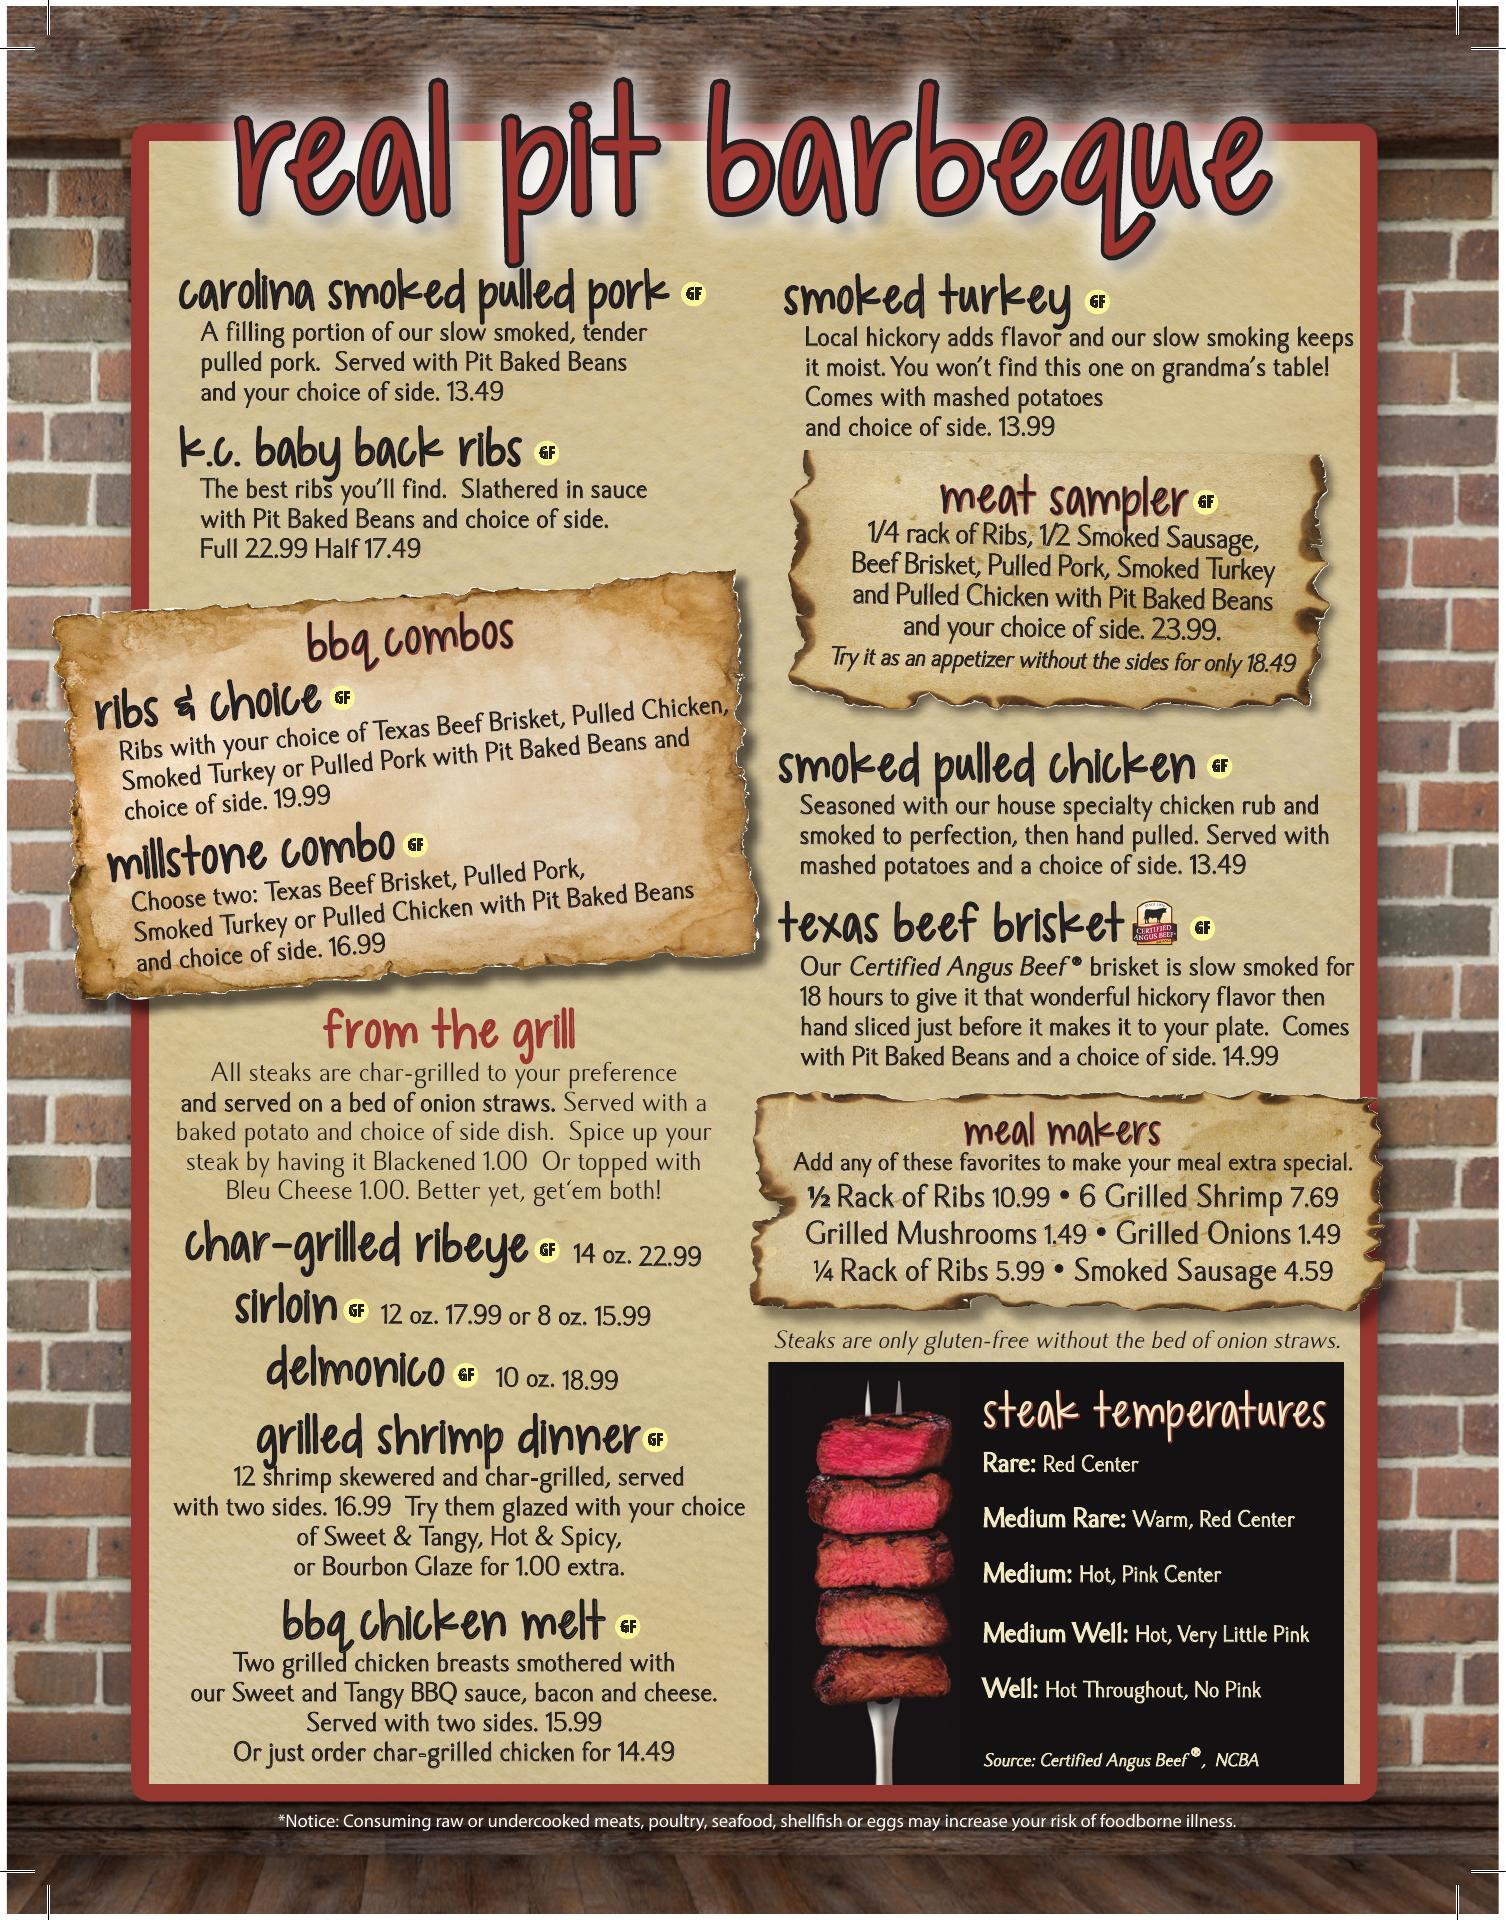 real pit barbeque
carolina smoked pulled pork GF
A filling portion of our slow smoked, tender
pulled pork. Served with Pit Baked Beans
and your choice of side. 13.49
k.c. baby back ribs GF
The best ribs you'll find. Slathered in sauce
with Pit Baked Beans and choice of side.
Full 22.99 Half 17.49
bbq combos
ribs & choice GF
Ribs with your choice of Texas Beef Brisket, Pulled Chicken,
Smoked Turkey or Pulled Pork with Pit Baked Beans and
choice of side. 19.99
millstone combo GF
Choose two: Texas Beef Brisket, Pulled Pork,
Smoked Turkey or Pulled Chicken with Pit Baked Beans
and choice of side. 16.99
from the grill
All steaks are char-grilled to your preference
and served on a bed of onion straws. Served with a
baked potato and choice of side dish. Spice up your
steak by having it Blackened 1.00 Or topped with
Bleu Cheese 1.00. Better yet, get'em both!
char-grilled ribeye GF 14 oz. 22.99
sirloin GF 12 oz. 17.99 or 8 oz. 15.99
delmonico GF 10 oz. 18.99
grilled shrimp dinner GF
12 shrimp skewered and char-grilled, served
with two sides. 16.99 Try them glazed with your choice
of Sweet & Tangy, Hot & Spicy,
or Bourbon Glaze for 1.00 extra.
bbq chicken melt GF
Two grilled chicken breasts smothered with
our Sweet and Tangy BBQ sauce, bacon and cheese.
Served with two sides. 15.99
Or just order char-grilled chicken for 14.49
smoked turkey GF
Local hickory adds flavor and our slow smoking keeps
it moist. You won't find this one on grandma's table!
Comes with mashed potatoes
and choice of side. 13.99
meat sampler GF
1/4 rack of Ribs, 1/2 Smoked Sausage,
Beef Brisket, Pulled Pork, Smoked Turkey
and Pulled Chicken with Pit Baked Beans
and your choice of side. 23.99.
Try it as an appetizer without the sides for only 18.49
smoked pulled chicken GF
Seasoned with our house specialty chicken rub and
smoked to perfection, then hand pulled. Served with
mashed potatoes and a choice of side. 13.49
texas beef brisket CERTIFIED ANGUS BEEF GF
Our Certified Angus Beef® brisket is slow smoked for
18 hours to give it that wonderful hickory flavor then
hand sliced just before it makes it to your plate. Comes
with Pit Baked Beans and a choice of side. 14.99
meal makers
Add any of these favorites to make your meal extra special.
½ Rack of Ribs 10.99 • 6 Grilled Shrimp 7.69
Grilled Mushrooms 1.49 • Grilled Onions 1.49
¼ Rack of Ribs 5.99 • Smoked Sausage 4.59
Steaks are only gluten-free without the bed of onion straws.
steak temperatures
Rare: Red Center
Medium Rare: Warm, Red Center
Medium: Hot, Pink Center
Medium Well: Hot, Very Little Pink
Well: Hot Throughout, No Pink
Source: Certified Angus Beef®, NCBA
*Notice: Consuming raw or undercooked meats, poultry, seafood, shellfish or eggs may increase your risk of foodborne illness.